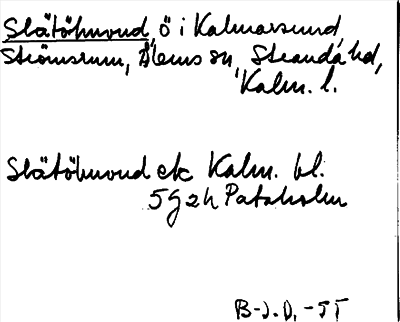 Slätöhuvud, ö i Kalmarsund,
Strömsrum, Ålems sn, Stranda hd,
Kalm. l.
Slätöhuvud ek Kalm. bl.
5 G 2 h Pataholm
B-J. D. -55